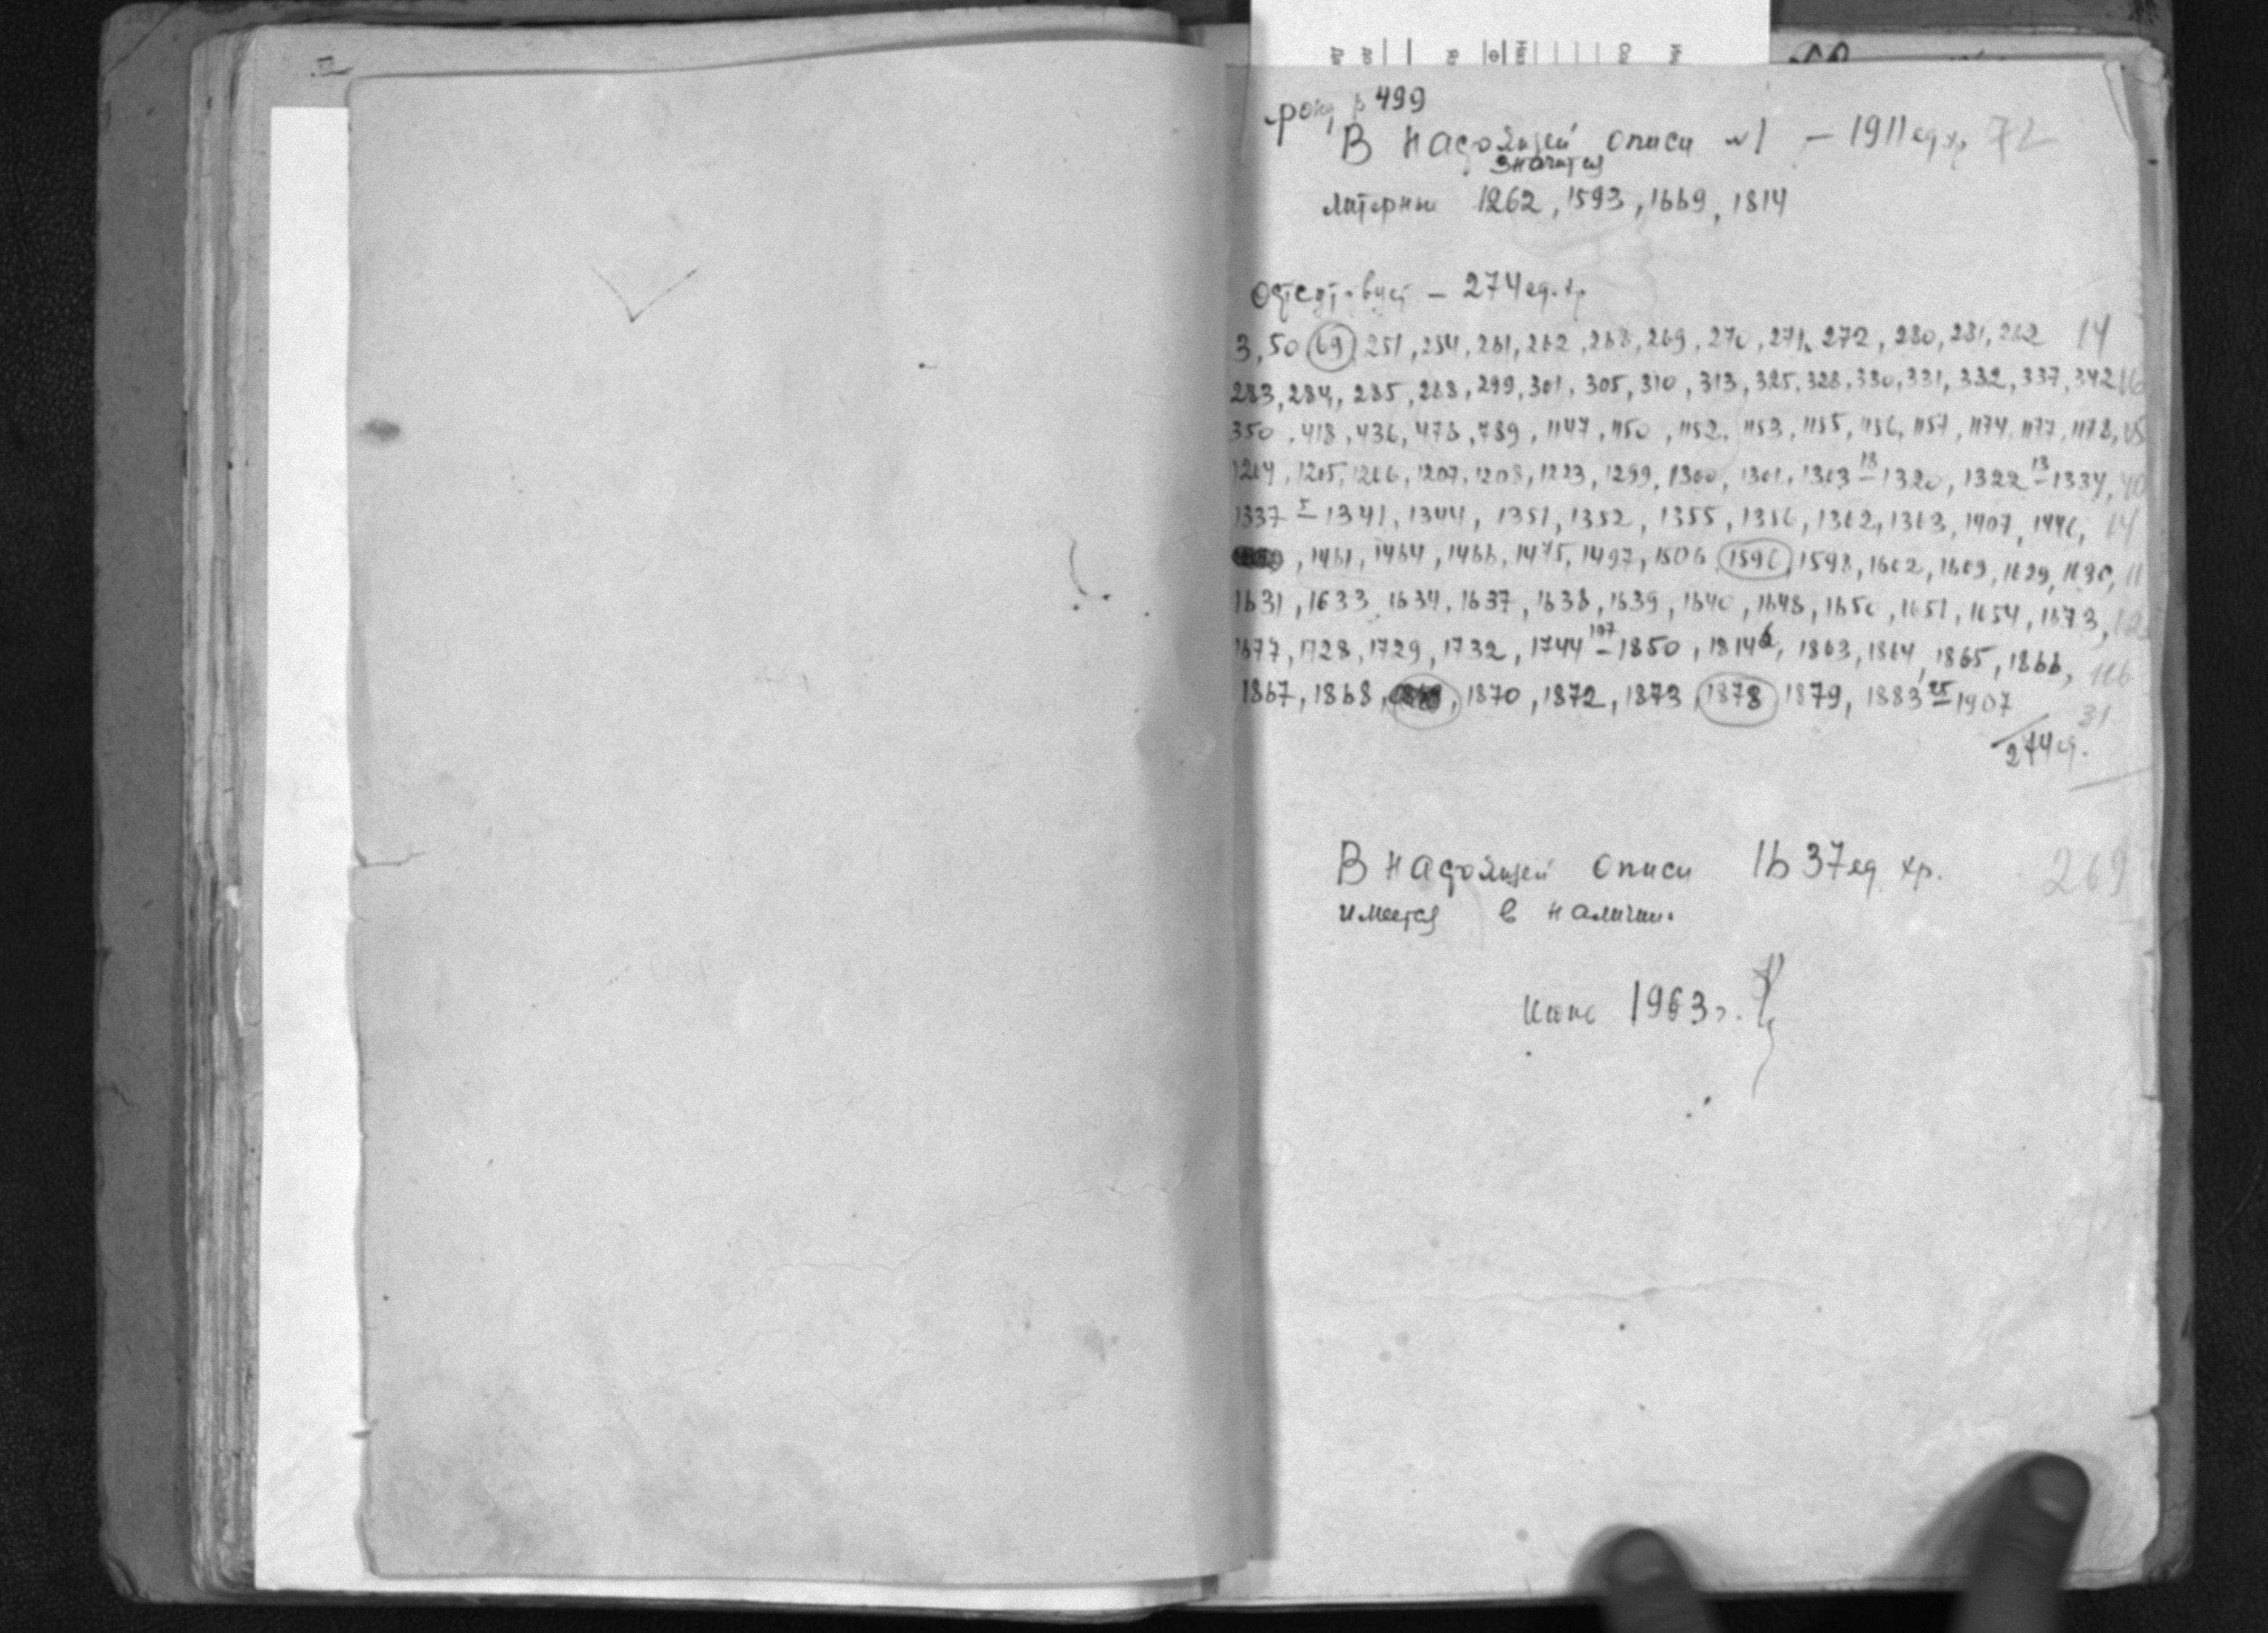 фонд р 499
В настоящей описи №1 — 1911 ед. хр. 72
значится
литерные 1262, 1593, 1669, 1814
Отсутствует — 274 ед. хр.
3, 50 69, 251, 254, 261, 262, 268, 269, 270, 271, 272, 280, 281, 282 14
283, 284, 285, 288, 299, 301, 305, 310, 313, 325, 328, 330, 331, 332, 337, 342 16
350, 418, 436, 478, 789, 1147, 1150, 1152, 1153, 1155, 1156, 1157, 1174, 1177, 1178, 15
1204, 1205, 1206, 1207, 1208, 1223, 1299, 1300, 1301, 1303 18 — 1320, 1322 13 — 1334, 40
1337 5 — 1341, 1344, 1351, 1352, 1355, 1356, 1362, 1363, 1407, 1446, 14
, 1461, 1464, 1466, 1475, 1497, 1506, 1596, 1598, 1602, 1609, 1629, 1630, 11
1631, 1633, 1634, 1637, 1638, 1639, 1640, 1648, 1650, 1651, 1654, 1673, 12
1677, 1728, 1729, 1732, 1744 107 — 1850, 1814б, 1863, 1864, 1865, 1866, 116
1867, 1868, 1870, 1872, 1873, 1878 1879, 1883 25 — 1907
31
274 ед.
В настоящей описи 1637 ед. хр. 269
имеется в наличии.
Июнь 1963 г.